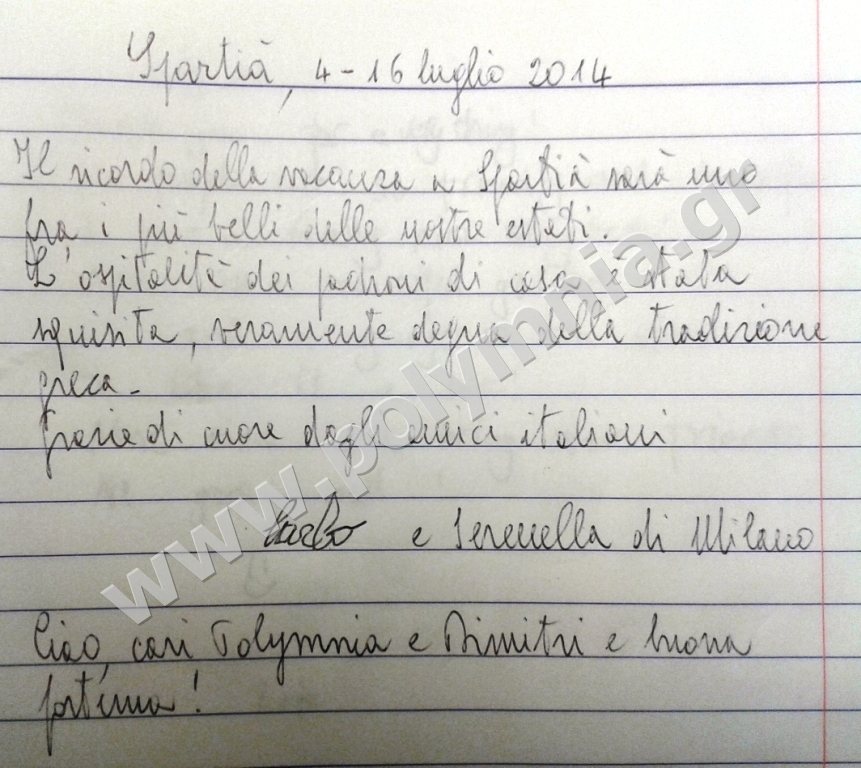 Spartià, 4-16 luglio 2014
Il ricordo della vacanza a Spartià sarà uno
fra i più belli delle nostre estati.
L'ospitalità dei padroni di casa è stata
squisita, veramente degna della tradizione
greca.
Grazie di cuore dagli amici italiani
Carlo e Serenella di Milano
Ciao, cari Polymnia e Dimitri e buona
fortuna!
www.polymnia.gr